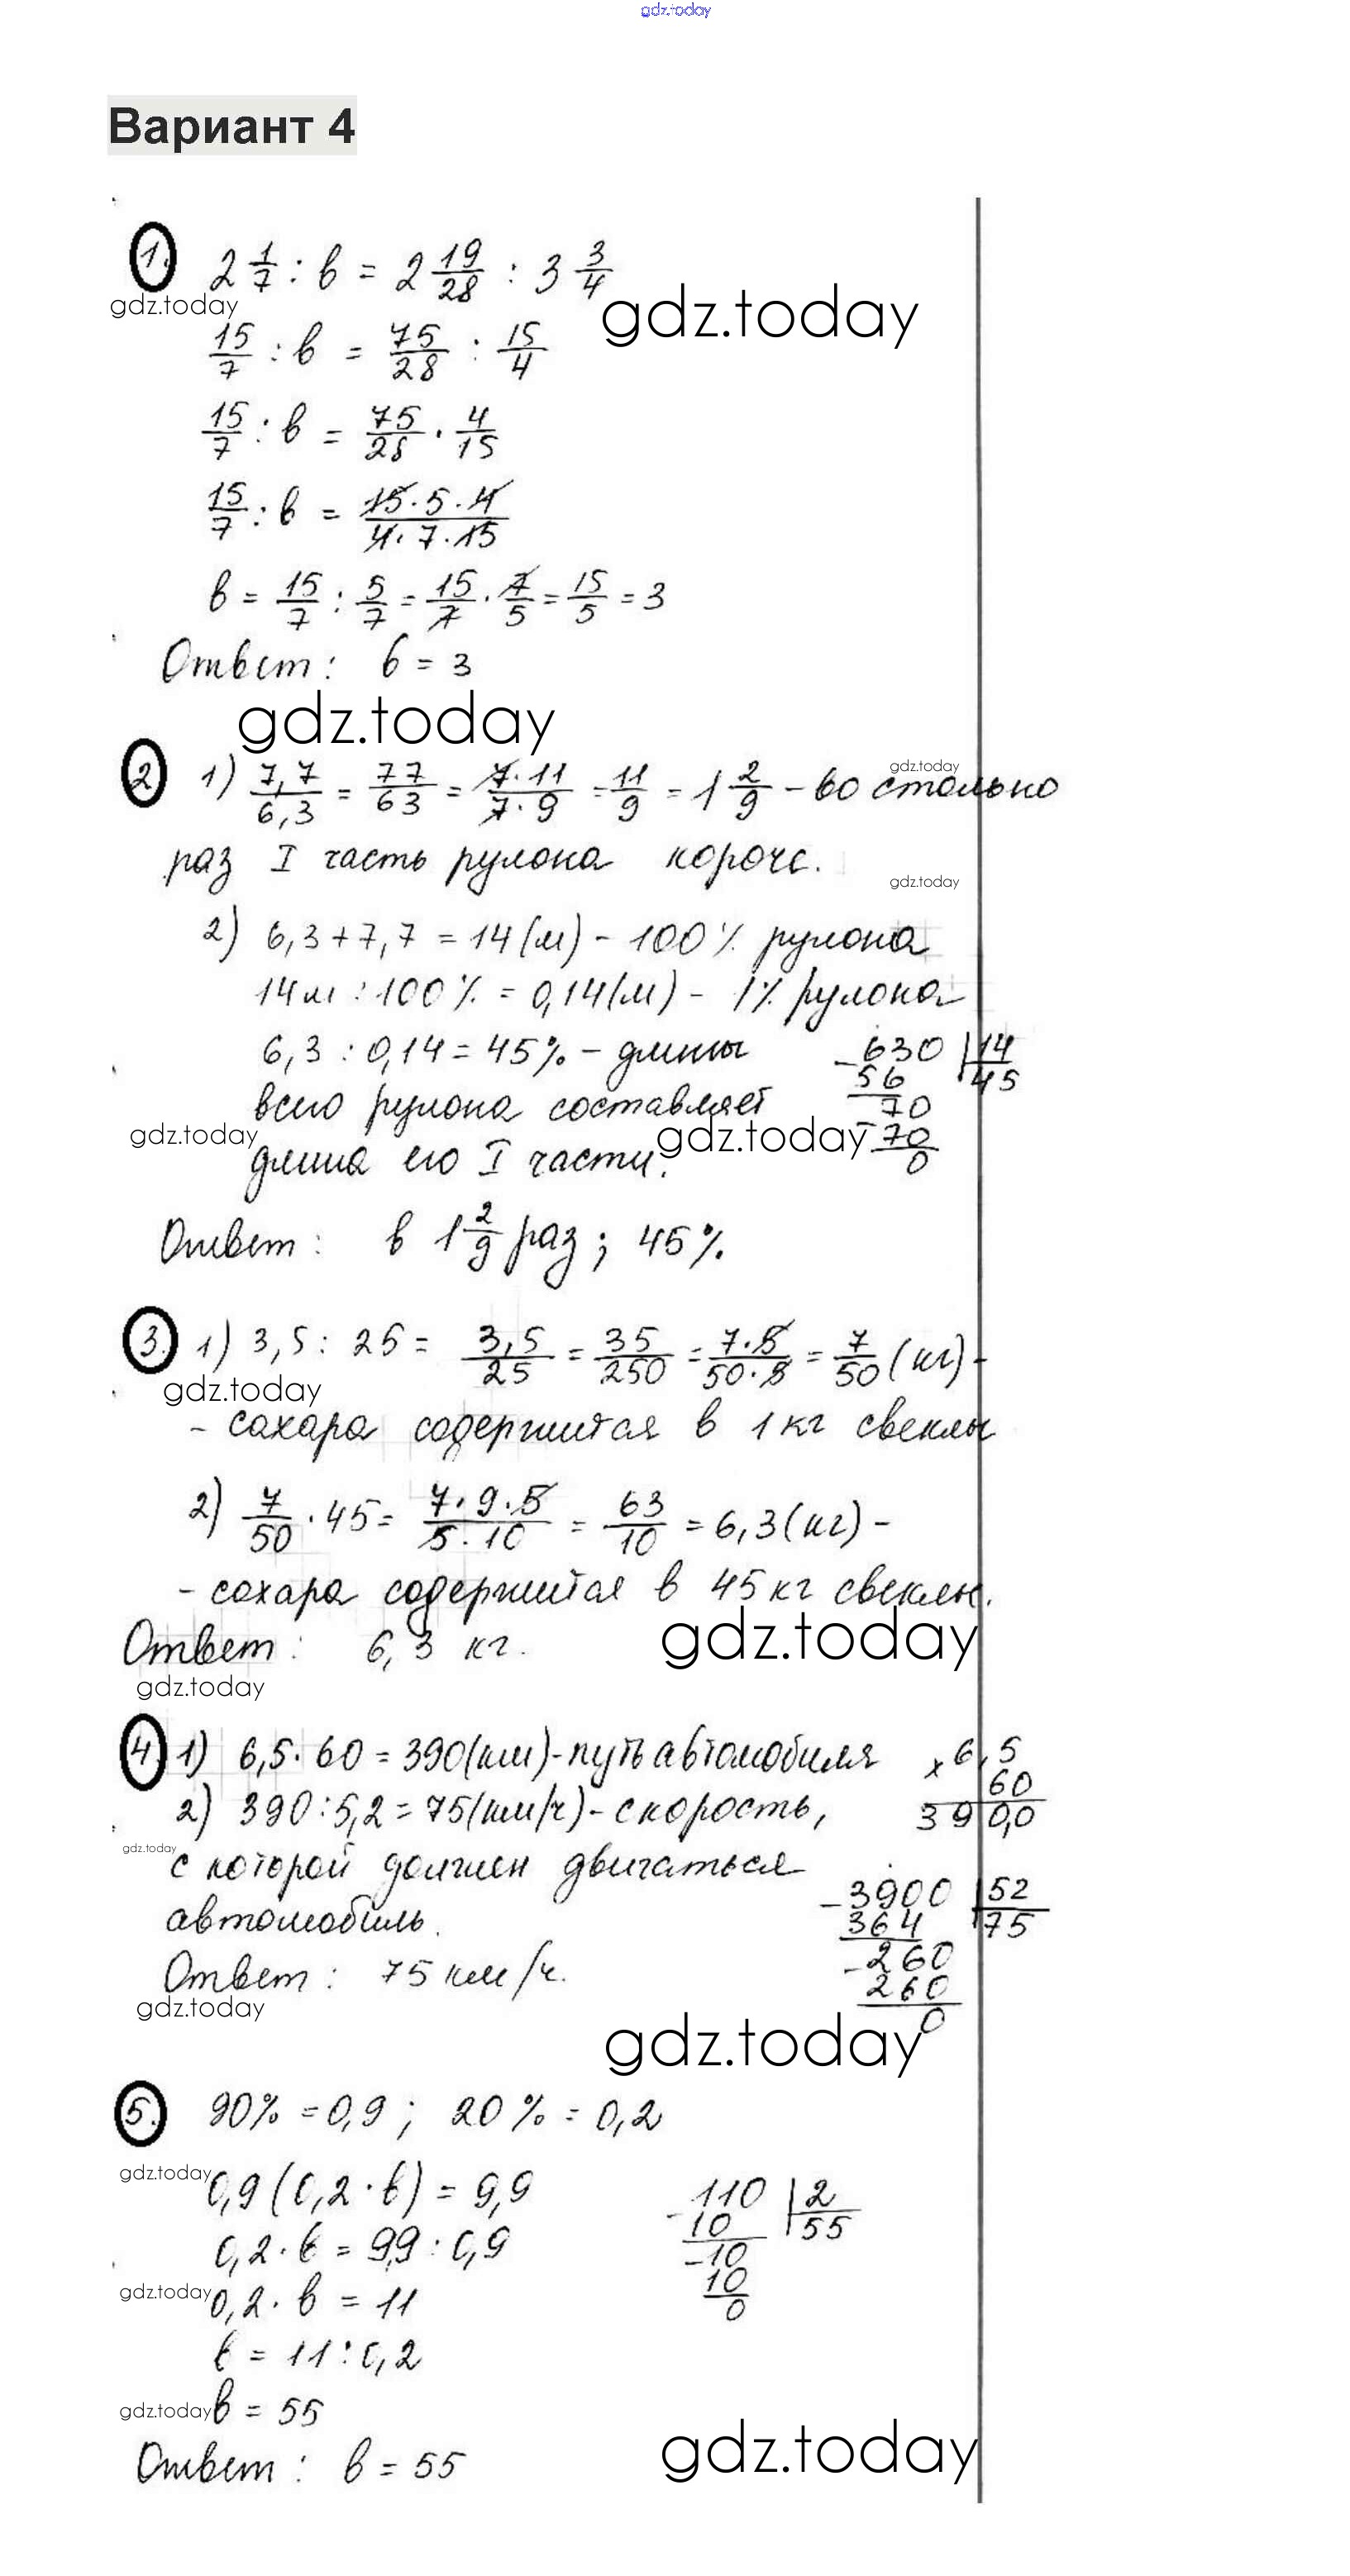 gdz.today
Вариант 4
1. 2 1/7 : b = 2 19/28 : 3 3/4
gdz.today
gdz.today
15/7 : b = 75/28 : 15/4
15/7 : b = 75/28 · 4/15
15/7 : b = 15·5·4/4·7·15
b = 15/7 : 5/7 = 15/7 · 7/5 = 15/5 = 3
Ответ: b = 3
gdz.today
gdz.today
2 1) 7,7/6,3 = 77/63 = 7·11/7·9 = 11/9 = 1 2/9 - во столько
раз I часть рулона короче.
gdz.today
2) 6,3 + 7,7 = 14 (м) - 100% рулона
14 м : 100% = 0,14 (м) - 1% рулона
6,3 : 0,14 = 45% - длины
всего рулона составляет
длина его I части.
630 | 14
56 45
70
70
0
gdz.today
gdz.today
Ответ: в 1 2/9 раз; 45%
3. 1) 3,5 : 25 = 3,5/25 = 35/250 = 7·5/50·5 = 7/50 (кг) -
gdz.today
- сахара содержится в 1 кг свеклы
2) 7/50 · 45 = 7·9·5/5·10 = 63/10 = 6,3 (кг) -
- сахара содержится в 45 кг свеклы.
Ответ: 6,3 кг.
gdz.today
gdz.today
4 1) 6,5 · 60 = 390 (км) - путь автомобиля
2) 390 : 5,2 = 75 (км/ч) - скорость,
с которой должен двигаться
автомобиль.
Ответ: 75 км/ч.
× 6,5
60
390,0
3900 | 52
364 75
260
260
0
gdz.today
gdz.today
gdz.today
5. 90% = 0,9; 20% = 0,2
gdz.today
0,9 (0,2 · b) = 9,9
0,2 · b = 9,9 : 0,9
gdz.today
0,2 · b = 11
b = 11 : 0,2
gdz.today
b = 55
Ответ: b = 55
110 | 2
10 55
10
10
0
gdz.today